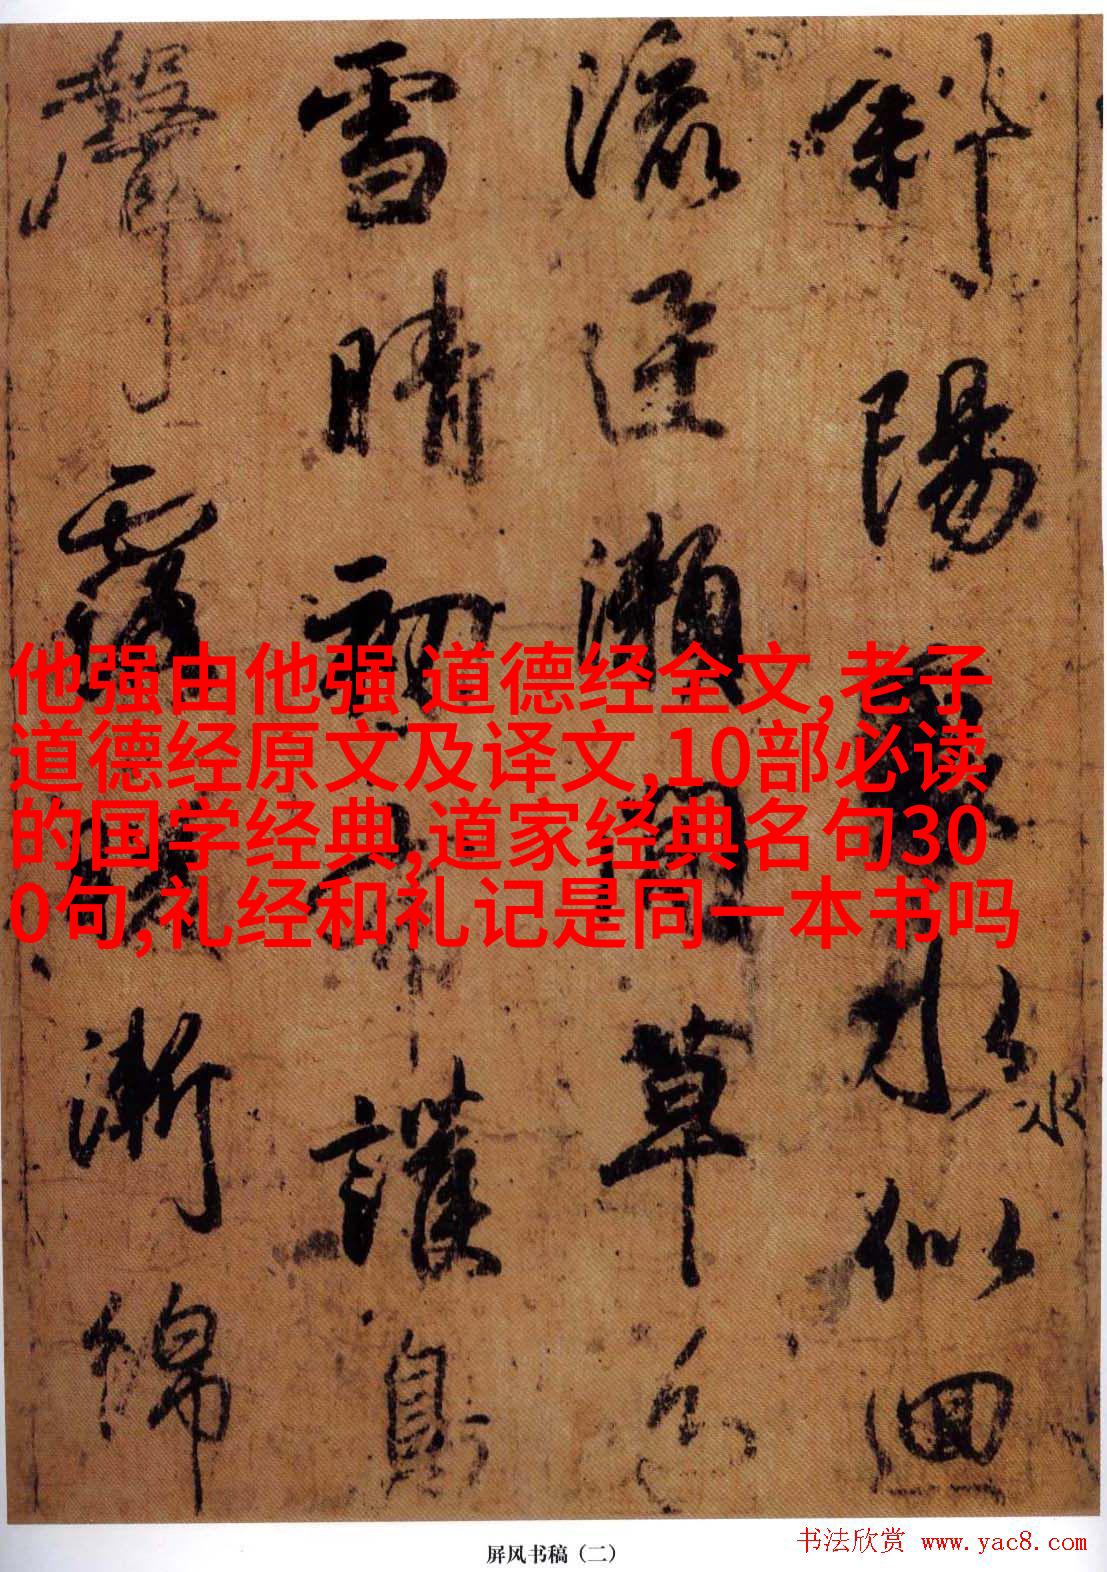 斜陽水似迴
水
流迅瀬間草色
雪晴初布護鳥
聲露漸綿
他强由他强,道德经全文,老子
道德经原文及译文,10部必读
的国学经典,道家经典名句30
0句,礼经和礼记是同一本书吗
屏风书稿（二）
书法欣赏 www.yac8.com